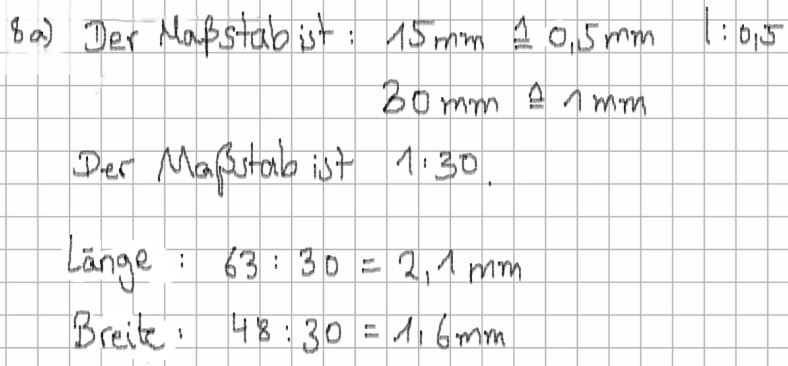 8a) Der Maßstab ist : 15mm ≙ 0,5mm |:0,5
30mm ≙ 1mm
Der Maßstab ist 1:30.
Länge : 63 : 30 = 2,1 mm
Breite : 48 : 30 = 1,6mm